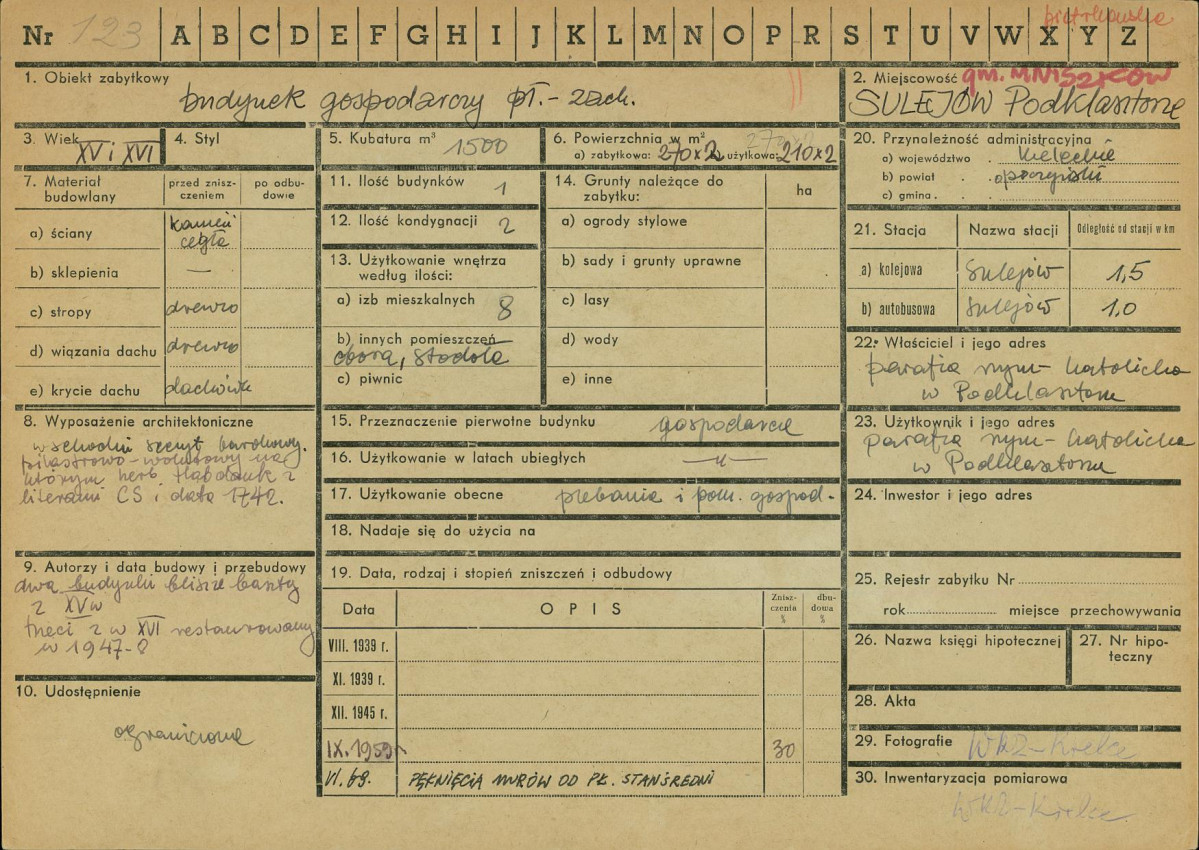 piotrkowskie
Nr 123 A B C D E F G H I J K L M N O P R S T U V W X Y Z
1. Obiekt zabytkowy
budynek gospodarczy pł.-zach.
2. Miejscowość gm. MNISZKÓW
SULEJÓW Podklasztorze
3. Wiek
XV i XVI
4. Styl
5. Kubatura m³ 1500
6. Powierzchnia w m² 270
a) zabytkowa: 270x2 użytkowa: 210x2
7. Materiał budowlany
przed zniszczeniem
po odbudowie
a) ściany kamień
cegła
b) sklepienia —
c) stropy drewno
d) wiązania dachu drewno
e) krycie dachu dachówka
8. Wyposażenie architektoniczne
wschodni szczyt barokowy.
pilastrowo-wolutowy na
którym herb Habdank z
literami CS i data 1742.
9. Autorzy i data budowy i przebudowy
dwa budynki bliższe baszty
z XV w
trzeci z w XVI restaurowany
w 1947-8
10. Udostępnienie
ograniczone
11. Ilość budynków 1
12. Ilość kondygnacji 2
13. Użytkowanie wnętrza
według ilości:
a) izb mieszkalnych 8
b) innych pomieszczeń
obora, stodoła
c) piwnic
14. Grunty należące do
zabytku:
ha
a) ogrody stylowe
b) sady i grunty uprawne
c) lasy
d) wody
e) inne
15. Przeznaczenie pierwotne budynku gospodarcze
16. Użytkowanie w latach ubiegłych —„—
17. Użytkowanie obecne plebania i pom. gospod-
18. Nadaje się do użycia na
19. Data, rodzaj i stopień zniszczeń i odbudowy
Data
OPIS
Zniszczenia %
dbudowa %
VIII. 1939 r.
XI. 1939 r.
XII. 1945 r.
IX. 1959 r 30
VI. 68. PĘKNIĘCIA MURÓW OD PŁ. STAN ŚREDNI
20. Przynależność administracyjna
a) województwo kieleckie
b) powiat opoczyński
c) gmina
21. Stacja
Nazwa stacji
Odległość od stacji w km
a) kolejowa Sulejów 1,5
b) autobusowa Sulejów 1,0
22. Właściciel i jego adres
parafia rzym-katolicka
w Podklasztorzu
23. Użytkownik i jego adres
parafia rzym-katolicka
w Podklasztorzu
24. Inwestor i jego adres
25. Rejestr zabytku Nr
rok miejsce przechowywania
26. Nazwa księgi hipotecznej
27. Nr hipo-
teczny
28. Akta
29. Fotografie WKZ-Kielce
30. Inwentaryzacja pomiarowa
WKZ-Kielce